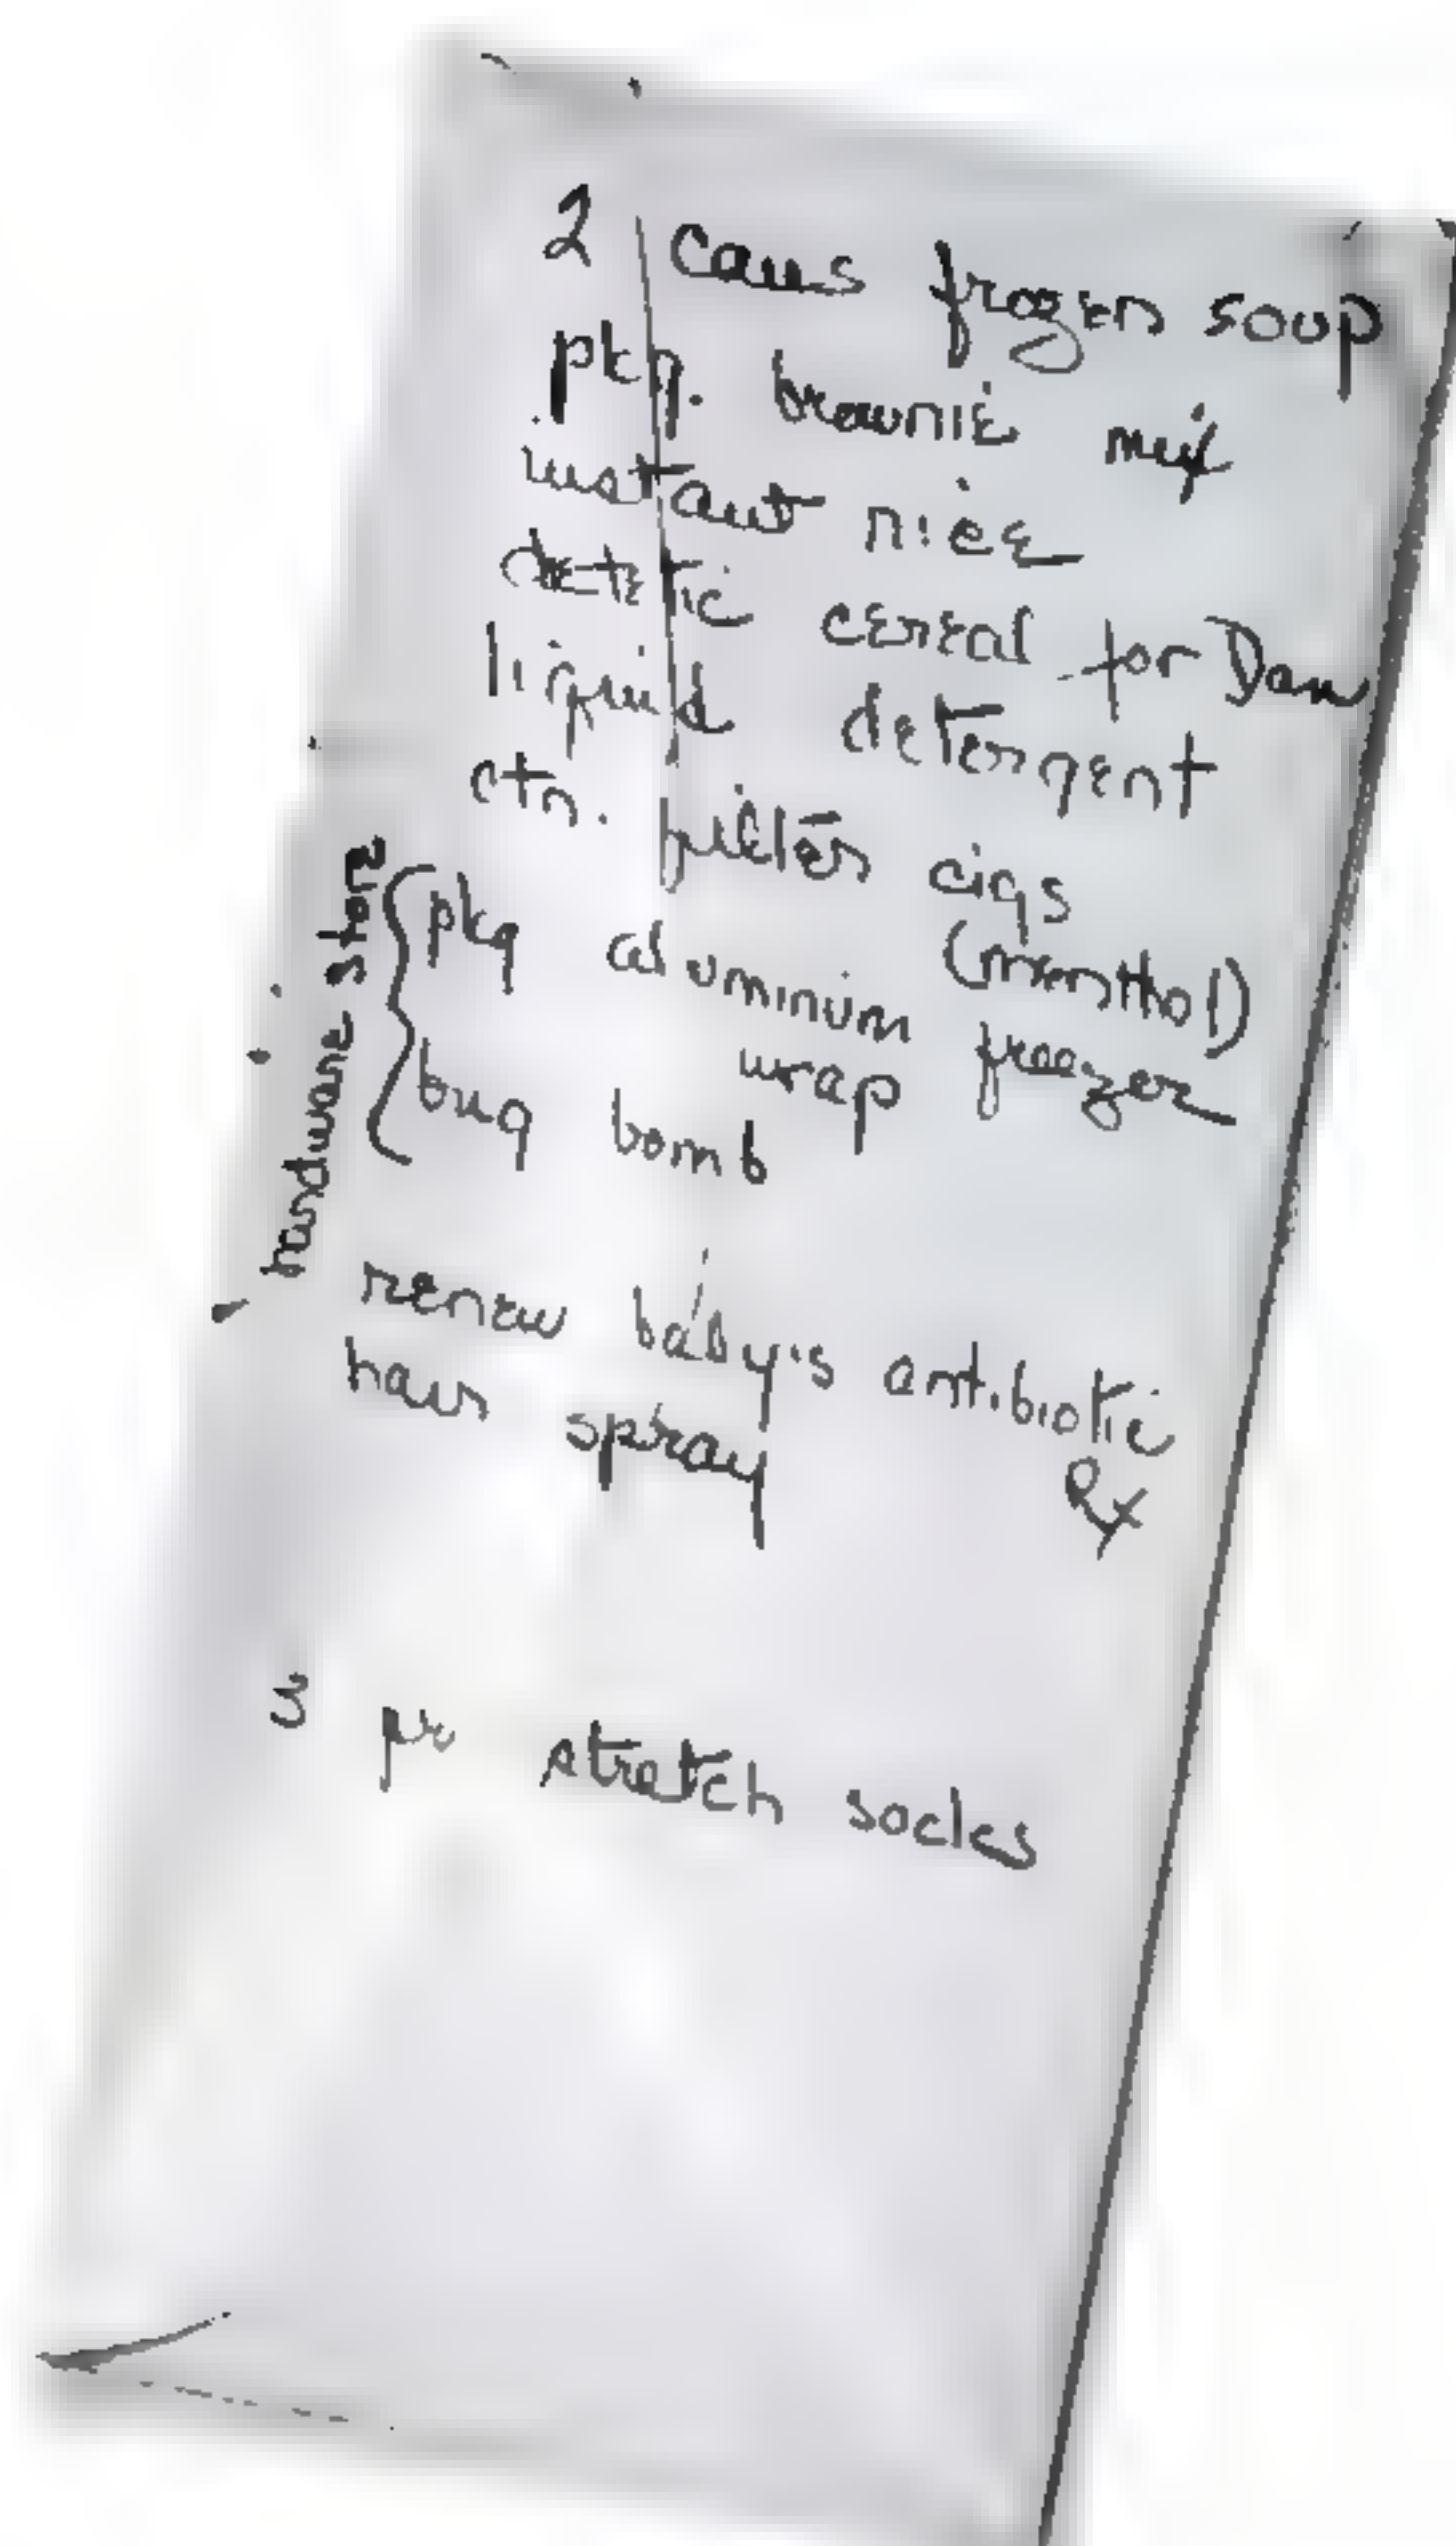 2 cans frozen soup
pkg. brownie mix
instant rice
dietetic cereal for Dan
liquid detergent
ctn. filter cigs
(menthol)
hardware store
pkg aluminum
wrap freezer
bug bomb
renew baby's antibiotic
Rx
hair spray
3 pr stretch socks